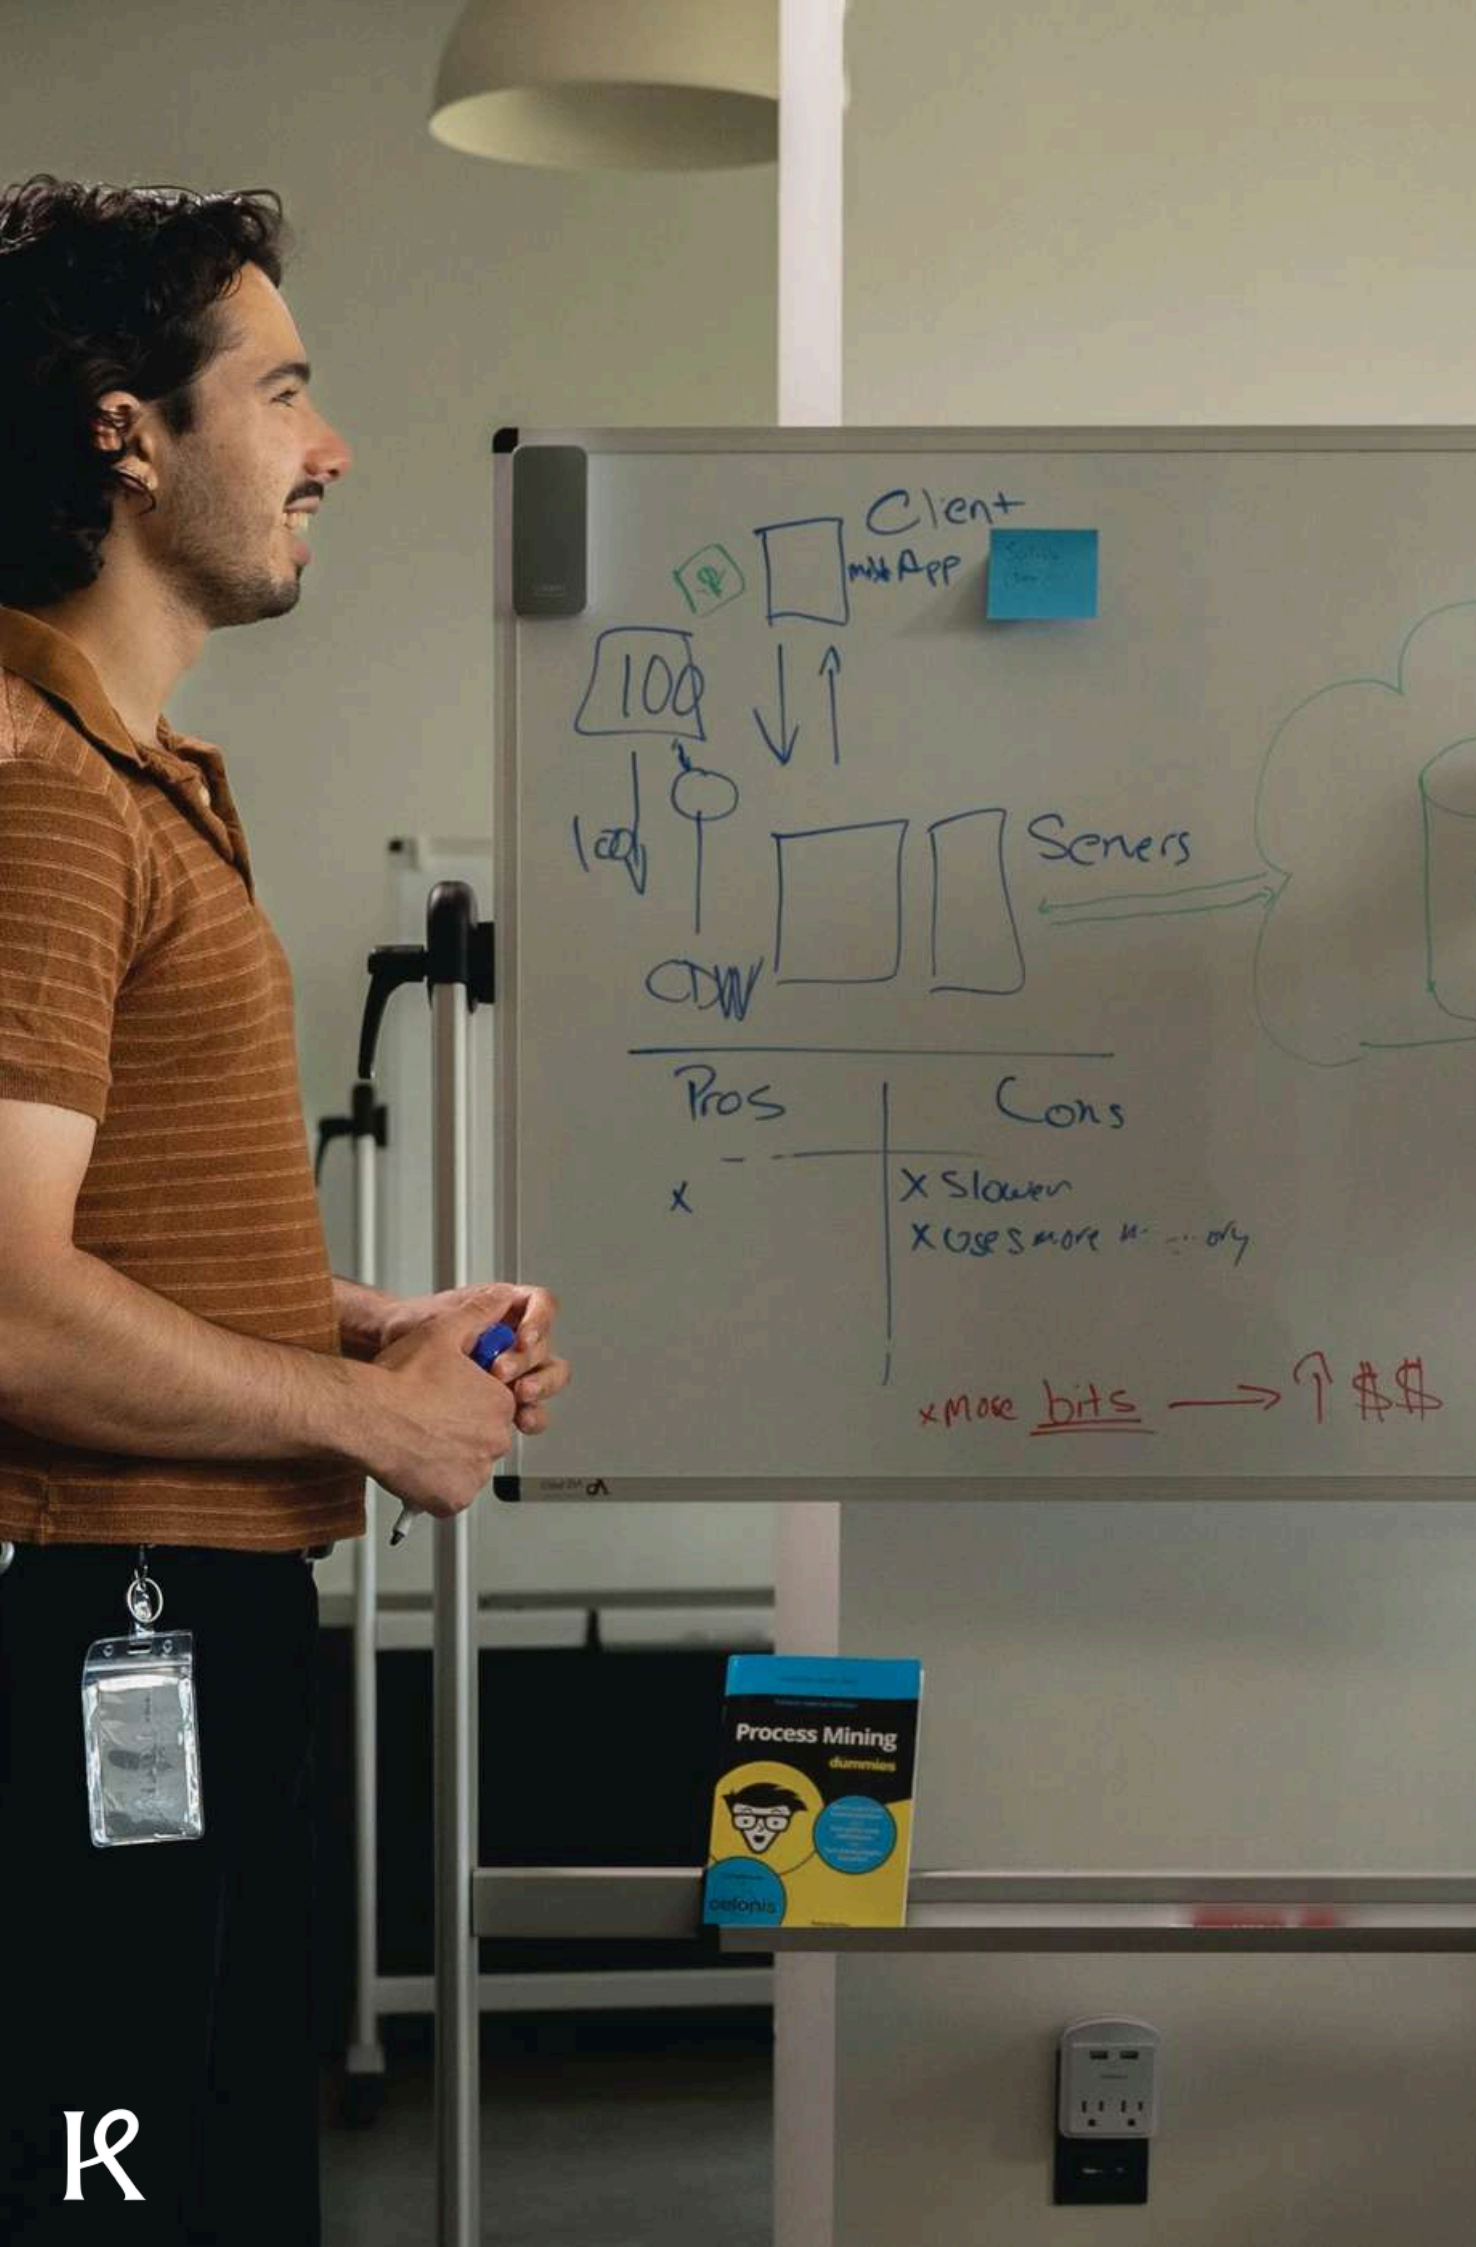 Client
App
100
100
Servers
CDW
Pros
Cons
x
x Slower
x Uses more
x more bits → ↑ $$
Process Mining
dummies
celonis